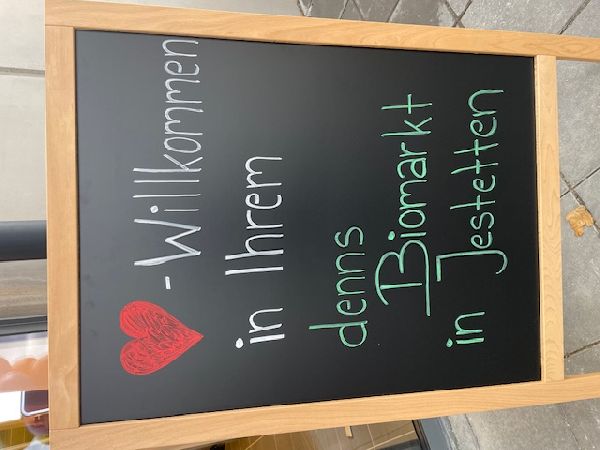 - Willkommen
in Ihrem
denns
Biomarkt
in Jestetten